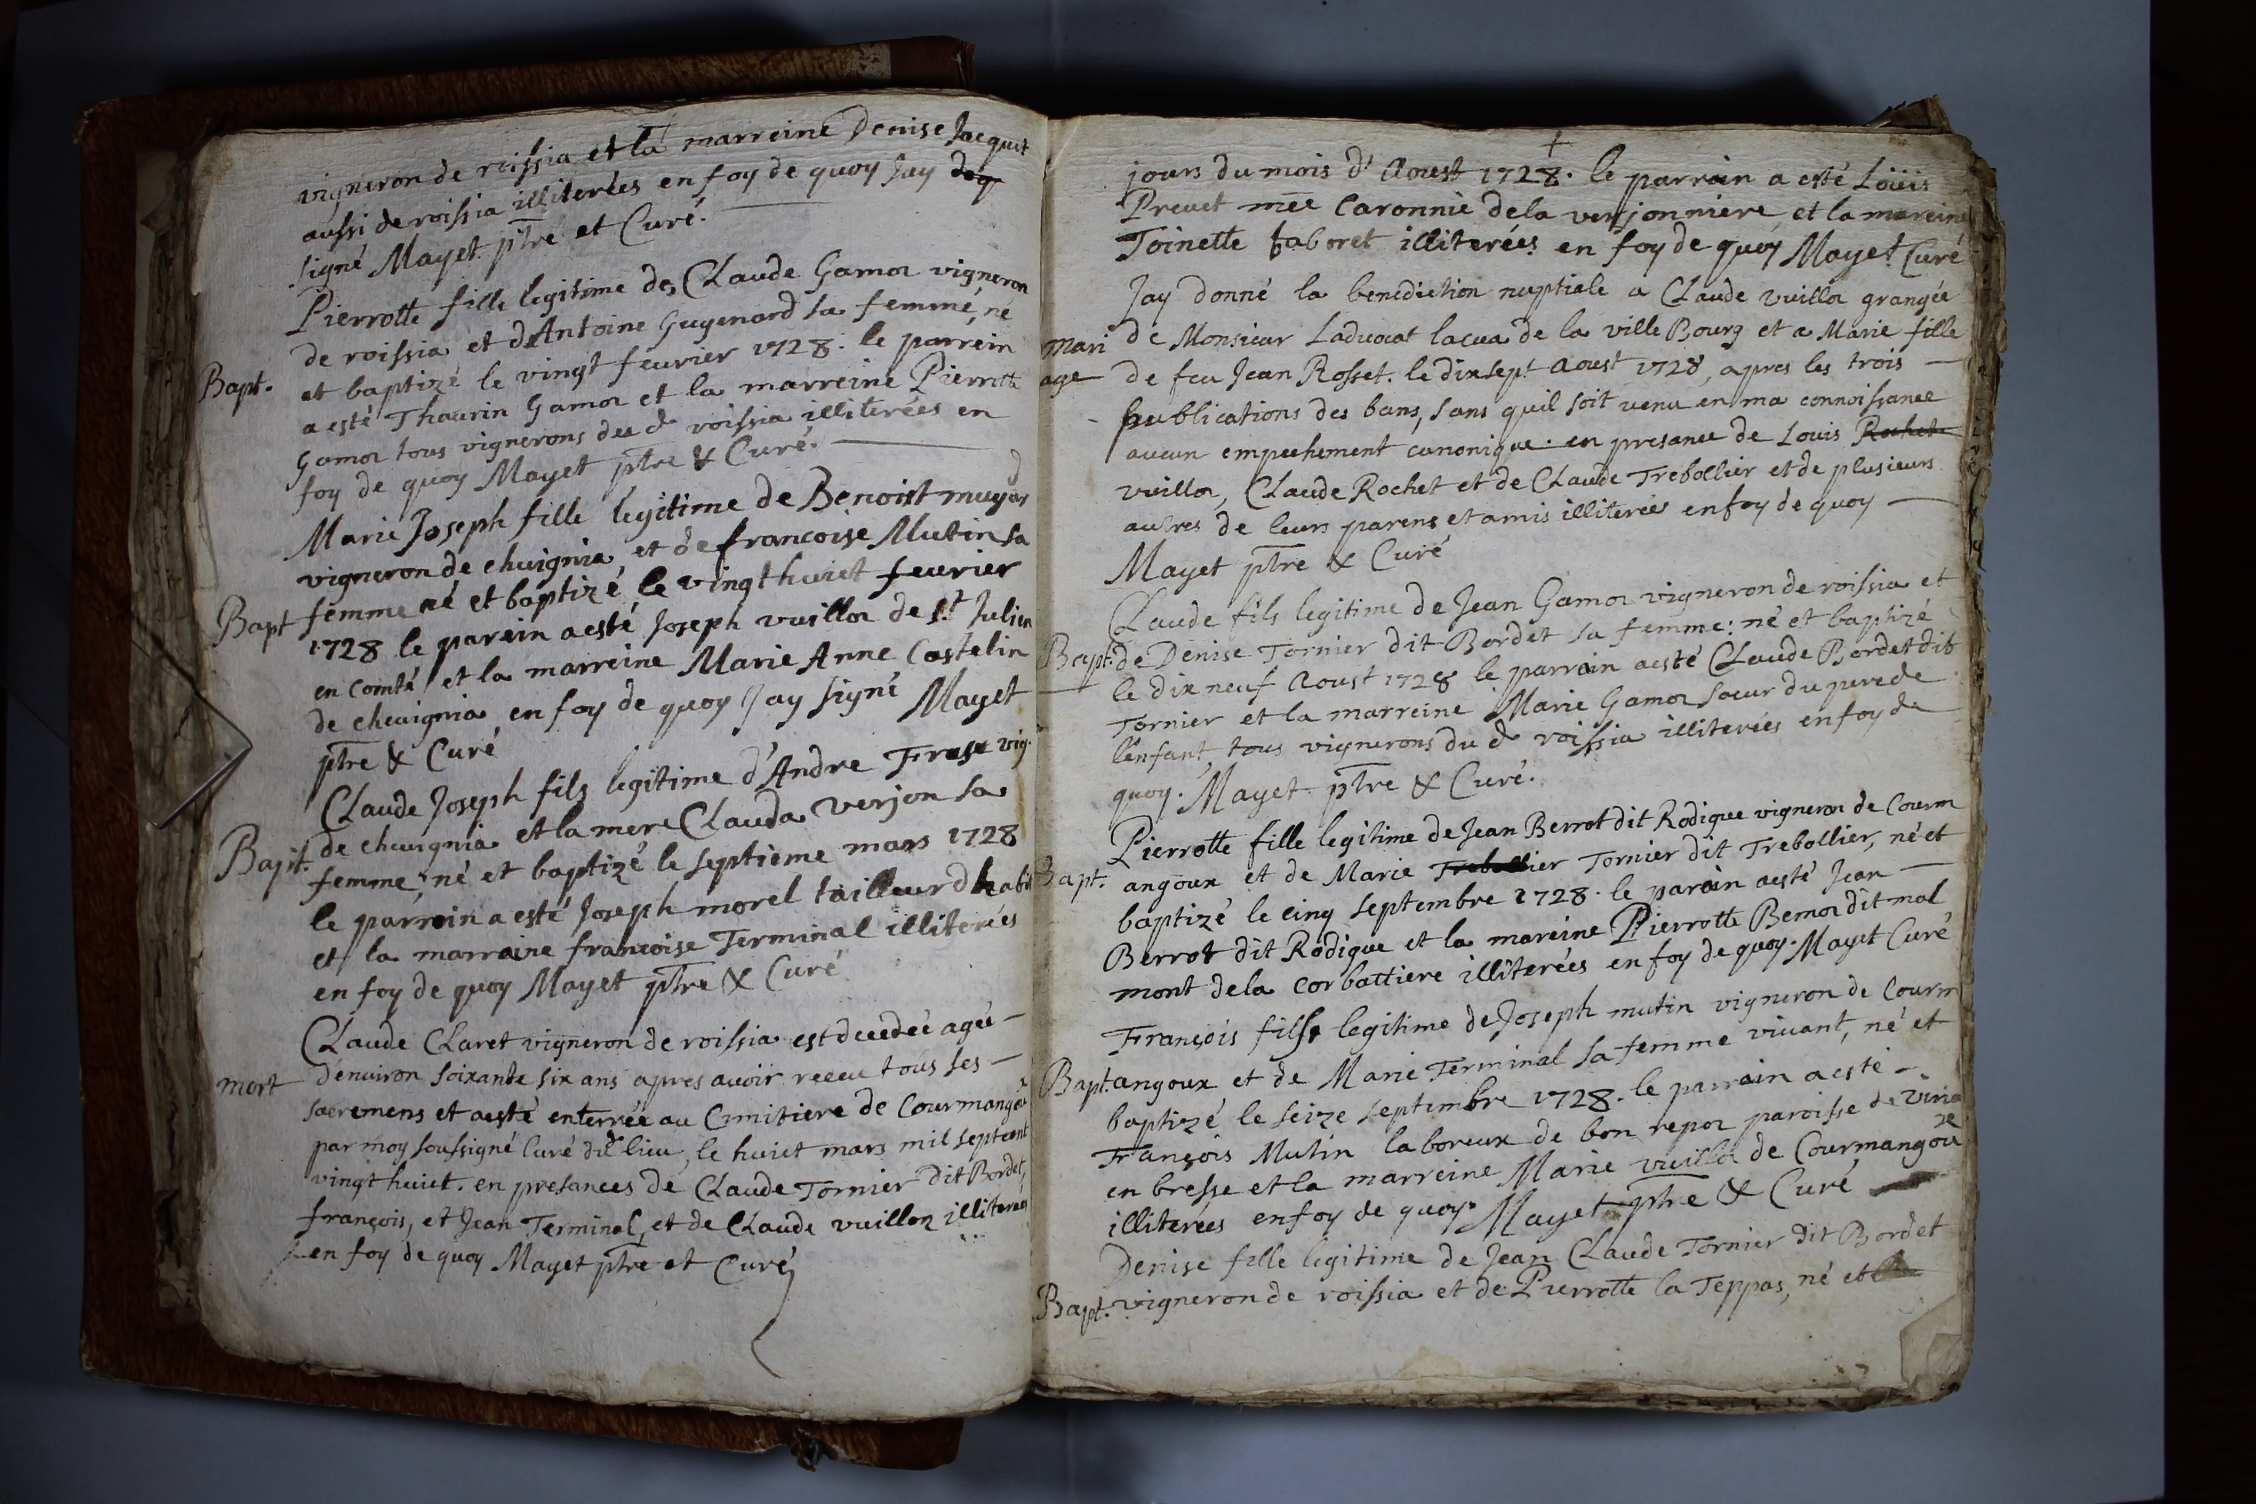 vigneron de roissia et la marreine Denise Jacquet
aussi de roissia illiterées en foy de quoy Jay
signé Mayet ptre et Curé.
Pierrotte fille legitime de Claude Gamor vigneron
de roissia et d'Antoine Guyenard sa femme, né
Bapt. et baptizé le vingt feurier 1728. le parrein
a esté Thaurin Gamor et la marreine Pierrotte
Gamor tous vignerons du d. roissia illiterées en
foy de quoy Mayet ptre & Curé.
Marie Joseph fille legitime de Benoist muyar
vigneron de cheuignia et de francoise Mutin sa
Bapt femme né et baptizé le vingt huict feurier
1728 le parein a esté Joseph vuillor de St. Julien
en comté et la marreine Marie Anne Castelin
de cheuignia en foy de quoy Jay signé Mayet
ptre & Curé
Claude Joseph fils legitime d'Andre vig.
Bapt. de cheuignia et la mere Clauda verjon sa
femme né et baptizé le septieme mars 1728
le parrein a esté Joseph morel tailleur dhabit
et la marraine francoise Terminal illiterées
en foy de quoy Mayet ptre & Curé
Claude Claret vigneron de roissia est decedeé ageé
mort denuiron soixante six ans apres auoir receu tous ses
sacremens et a esté enterrée au Cimitiere de Courmangou
par moy soussigné Curé dud. lieu, le huict mars mil septcent
vingt huict. en presances de Claude Tornier dit Bordet,
françois, et Jean Terminal, et de Claude vuillon illiterées
en foy de quoy Mayet ptre et Curé
jours du mois d'Aoust 1728. le parrain a esté Loüis
Preuet mee Caronnie de la verjonniere et la mareine
Toinette taboret illiterées en foy de quoy Mayet Curé
Jay donné la benediction nuptiale a Claude vuillor grangée
mari de Monsieur Laduocat lacua de la ville Bourg et a Marie fille
age de feu Jean Rosset. le dixsept Aoust 1728, apres les trois
publications des bans, sans quil soit venu en ma connoissance
aucun empechement canonique. en presance de Louis Rochet
vuillor, Claude Rochet et de Claude Trebollier et de plusieurs
autres de leurs parens et amis illiterée en foy de quoy
Mayet ptre & Curé
Claude fils legitime de Jean Gamor vigneron de roissia et
Bapt. de Denise Tornier dit Bordet sa femme: né et baptizé
le dix neuf Aoust 1728 le parrain a esté Claude Bordet dit
Tornier et la marreine Marie Gamor soeur du pere de
l'enfant, tous vignerons du d. roissia illiterées en foy de
quoy. Mayet ptre & Curé.
Pierrotte fille legitime de Jean Berrot dit Rodique vigneron de Courm
Bapt. angoux et de Marie Trebollier Tornier dit Trebollier, né et
baptizé le cinq septembre 1728. le parain a esté Jean
Berrot dit Rodique et la mareine Pierrotte Bemor dit mal
mont de la corbattiere illiterées en foy de quoy. Mayet Curé
François fils legitime de Joseph mutin vigneron de Courm
Bapt. angoux et de Marie Terminal sa femme viuant, né et
baptizé le seize septembre 1728. le parrain a esté
François Mutin laboreux de bon repor paroisse de viria
en bresse et la marreine Marie vuillor de Courmangou
illiterées en foy de quoy. Mayet ptre & Curé
Denise fille legitime de Jean Claude Tornier dit Bordet
Bapt. vigneron de roissia et de Pierrotte la Teppas, né et